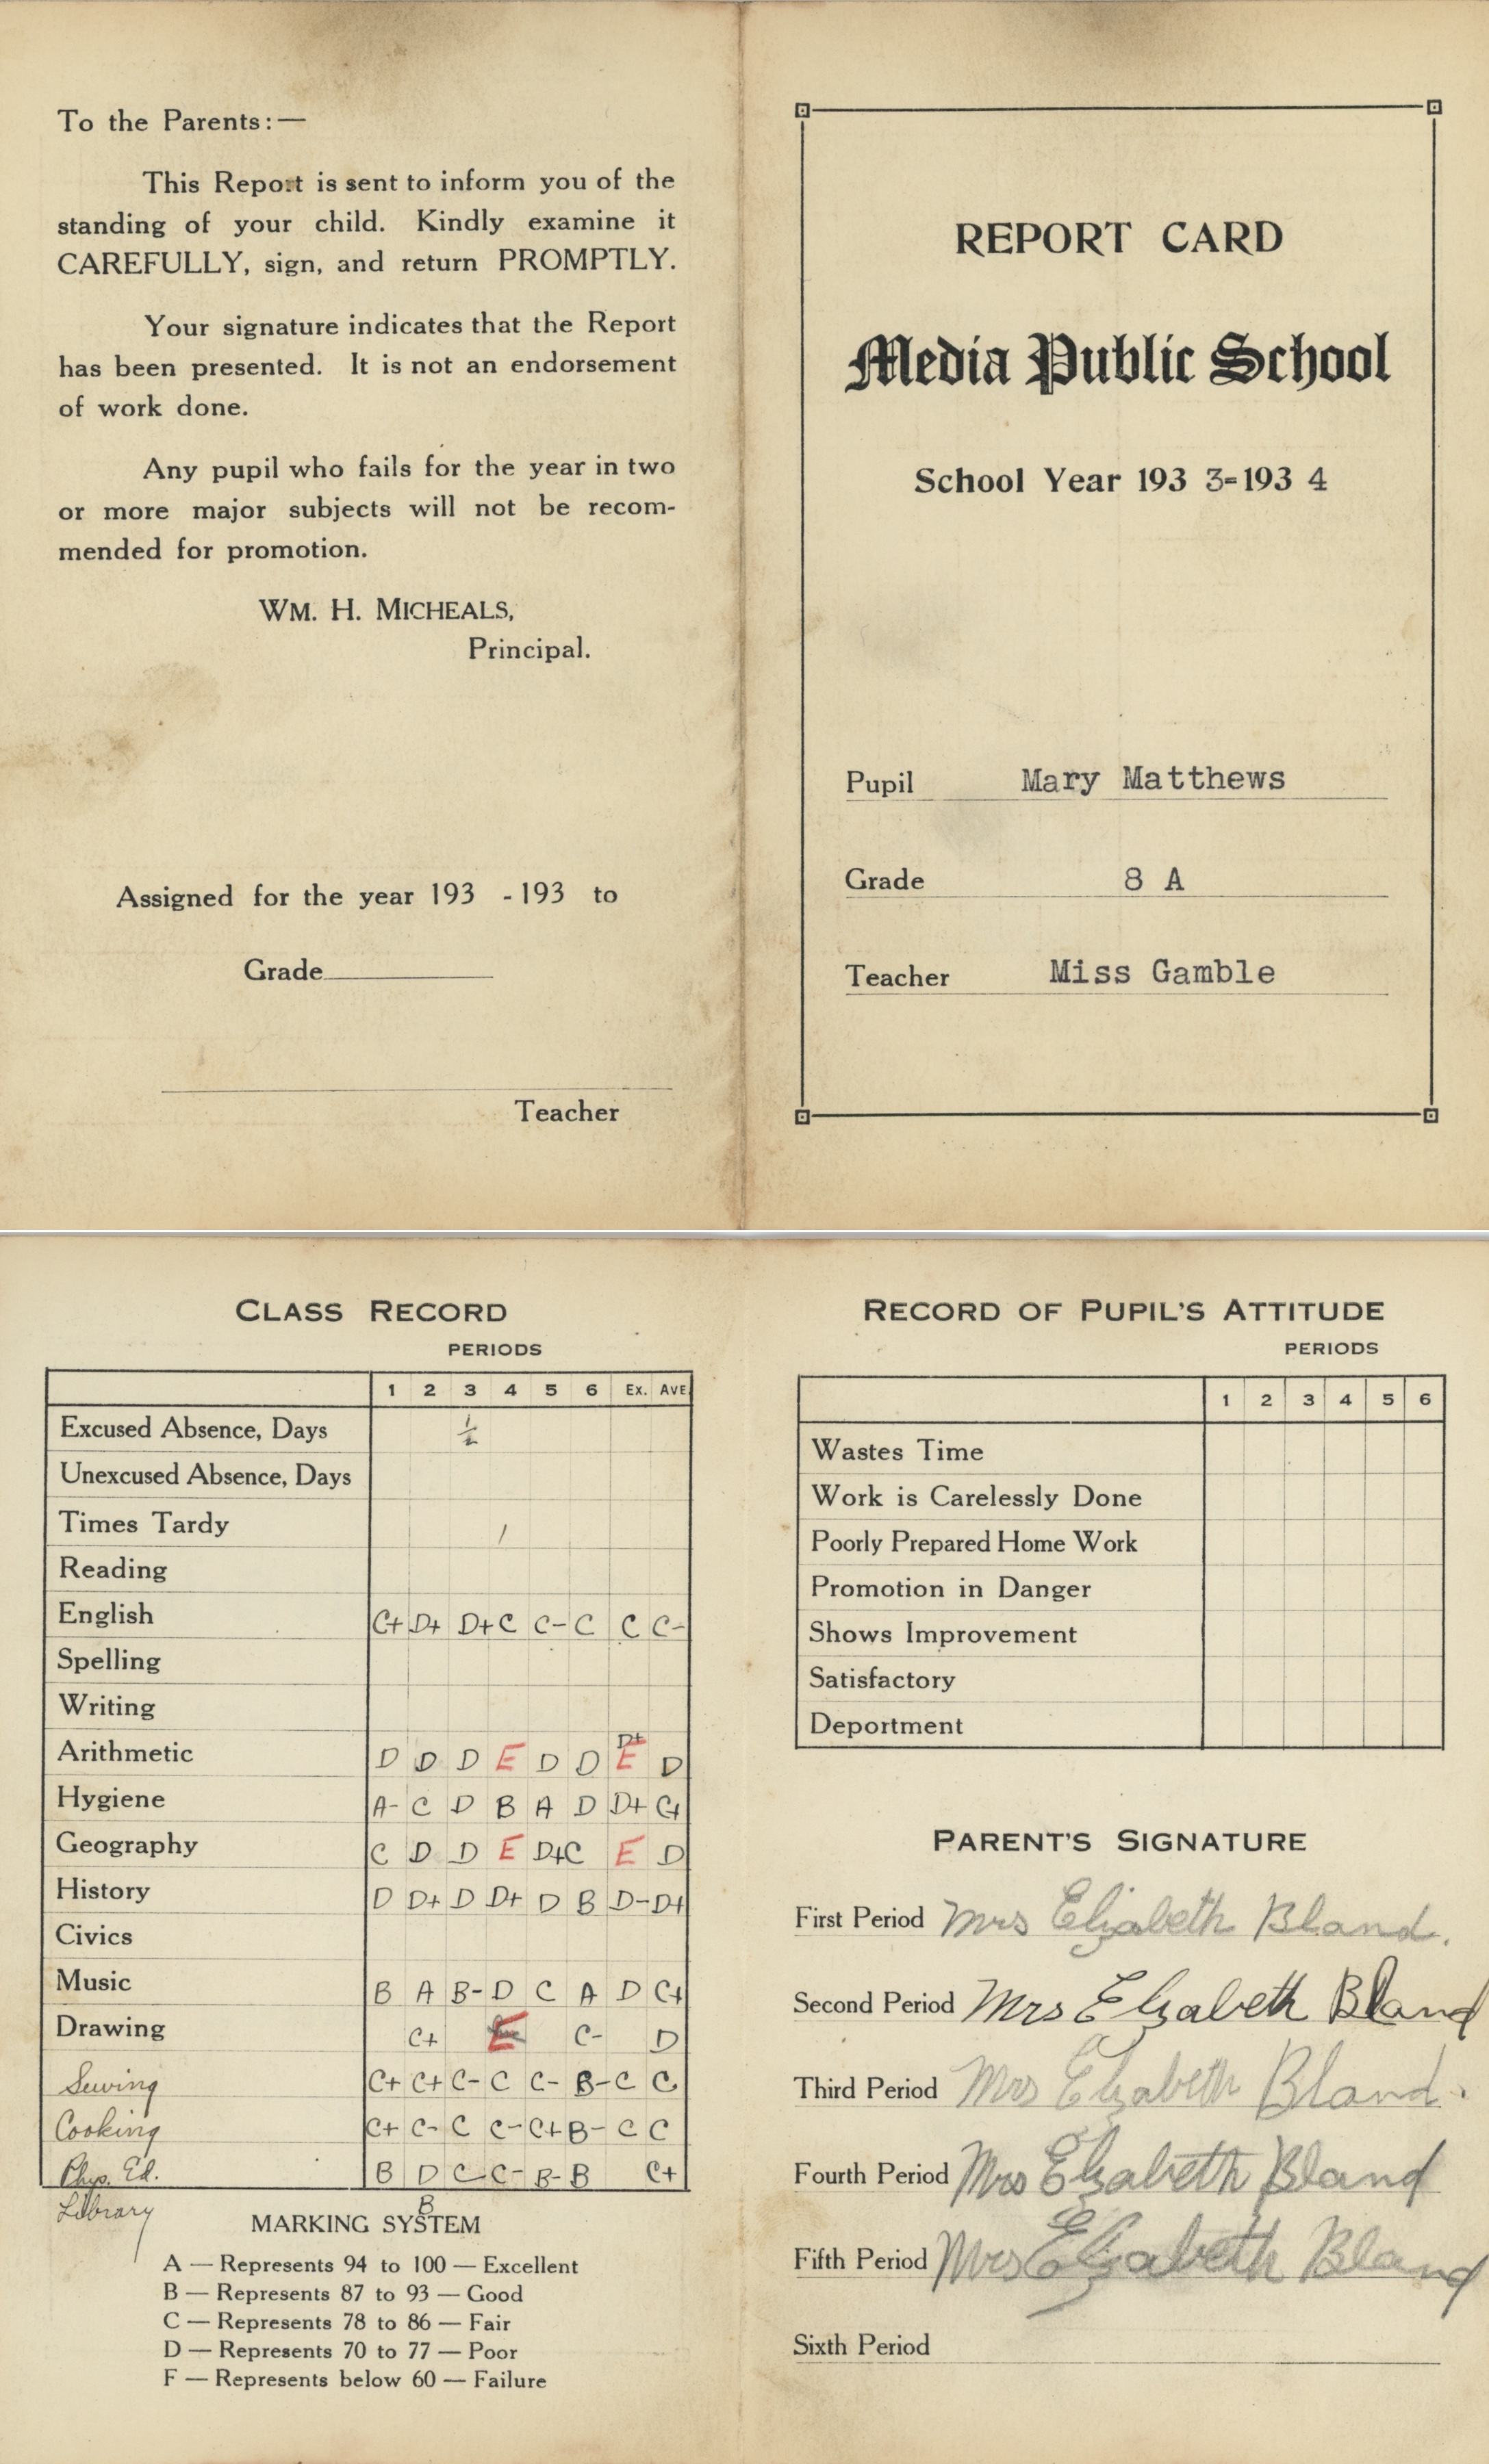 To the Parents:—
This Report is sent to inform you of the
standing of your child. Kindly examine it
CAREFULLY, sign, and return PROMPTLY.
Your signature indicates that the Report
has been presented. It is not an endorsement
of work done.
Any pupil who fails for the year in two
or more major subjects will not be recom-
mended for promotion.
WM. H. MICHEALS,
Principal.
Assigned for the year 193 -193 to
Grade
Teacher
REPORT CARD
Media Public School
School Year 193 3-193 4
Pupil Mary Matthews
Grade 8 A
Teacher Miss Gamble
CLASS RECORD
PERIODS
1 2 3 4 5 6 EX. AVE.
Excused Absence, Days ½
Unexcused Absence, Days
Times Tardy /
Reading
English C+ D+ D+ C C- C C C-
Spelling
Writing
Arithmetic D D D E D D D+ E D
Hygiene A- C D B A D D+ C+
Geography C D D E D+ C E D
History D D+ D D+ D B D- D+
Civics
Music B A B- D C A D C+
Drawing C+ E C- D
Sewing C+ C+ C- C C- B- C C
Cooking C+ C- C C- C+ B- C C
Phys. Ed. B D C- C- B- B C+
Library B
MARKING SYSTEM
A — Represents 94 to 100 — Excellent
B — Represents 87 to 93 — Good
C — Represents 78 to 86 — Fair
D — Represents 70 to 77 — Poor
F — Represents below 60 — Failure
RECORD OF PUPIL'S ATTITUDE
PERIODS
1 2 3 4 5 6
Wastes Time
Work is Carelessly Done
Poorly Prepared Home Work
Promotion in Danger
Shows Improvement
Satisfactory
Deportment
PARENT'S SIGNATURE
First Period Mrs Elizabeth Bland.
Second Period Mrs Elizabeth Bland
Third Period Mrs Elizabeth Bland.
Fourth Period Mrs Elizabeth Bland
Fifth Period Mrs Elizabeth Bland
Sixth Period